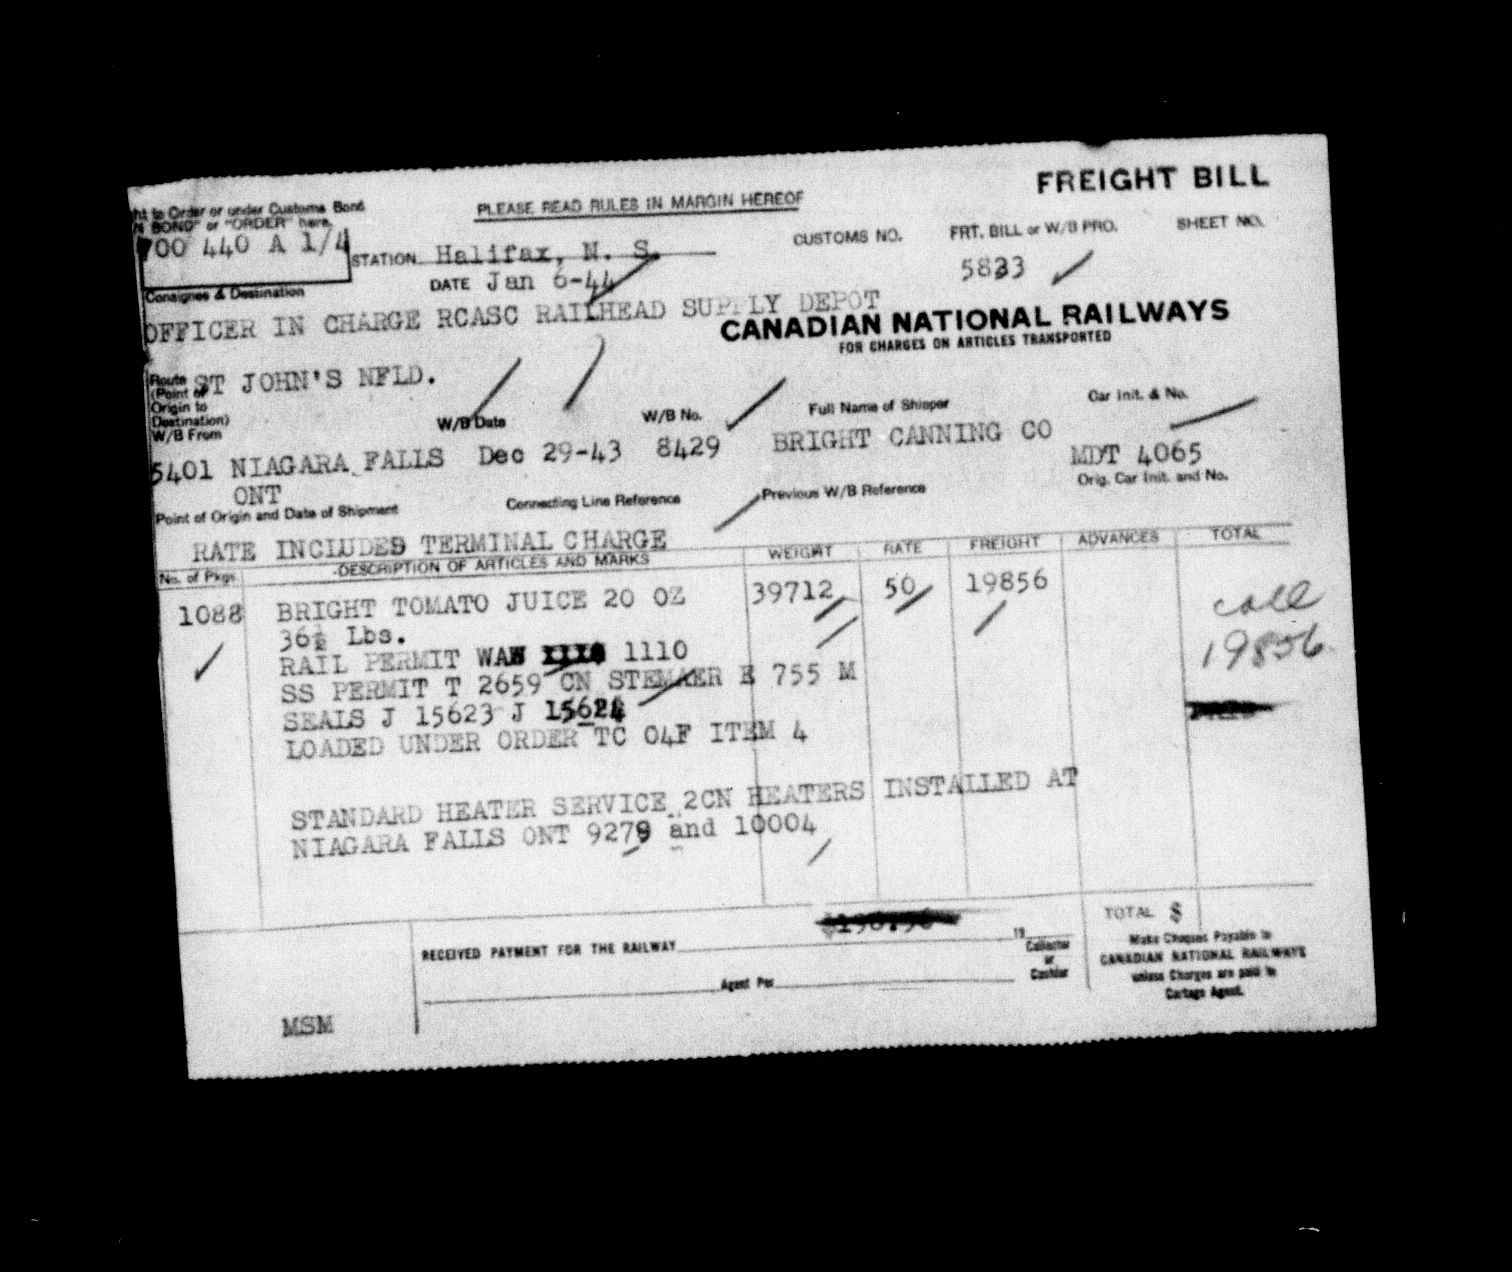 FREIGHT BILL
ht to Order or under Customs Bond
N BOND" or "ORDER" here.
PLEASE READ RULES IN MARGIN HEREOF
700 440 A 1/4
STATION Halifax, N. S.
CUSTOMS NO.
FRT. BILL or W/B PRO.
SHEET NO.
DATE Jan 6-44
5833
Consignee & Destination
OFFICER IN CHARGE RCASC RAILHEAD SUPPLY DEPOT
CANADIAN NATIONAL RAILWAYS
FOR CHARGES ON ARTICLES TRANSPORTED
Route ST JOHN'S NFLD.
(Point of
Origin to
Destination)
W/B From
W/B Date
W/B No.
Full Name of Shipper
Car Init. & No.
5401 NIAGARA FALLS Dec 29-43 8429 BRIGHT CANNING CO MDT 4065
ONT
Point of Origin and Date of Shipment
Connecting Line Reference
Previous W/B Reference
Orig. Car Init. and No.
RATE INCLUDES TERMINAL CHARGE
No. of Pkgs.
DESCRIPTION OF ARTICLES AND MARKS
WEIGHT
RATE
FREIGHT
ADVANCES
TOTAL
1088 BRIGHT TOMATO JUICE 20 OZ 39712 50 19856
coll
36½ Lbs.
19856
RAIL PERMIT WAW 1110
SS PERMIT T 2659 CN STEMAER E 755 M
SEALS J 15623 J 15624
LOADED UNDER ORDER TC 04F ITEM 4
STANDARD HEATER SERVICE 2CN HEATERS INSTALLED AT
NIAGARA FALLS ONT 9279 and 10004
TOTAL $
RECEIVED PAYMENT FOR THE RAILWAY 19
Collector
or
Cashier
Agent Per
Make Cheques Payable to
CANADIAN NATIONAL RAILWAYS
unless Charges are paid to
Cartage Agent.
MSM